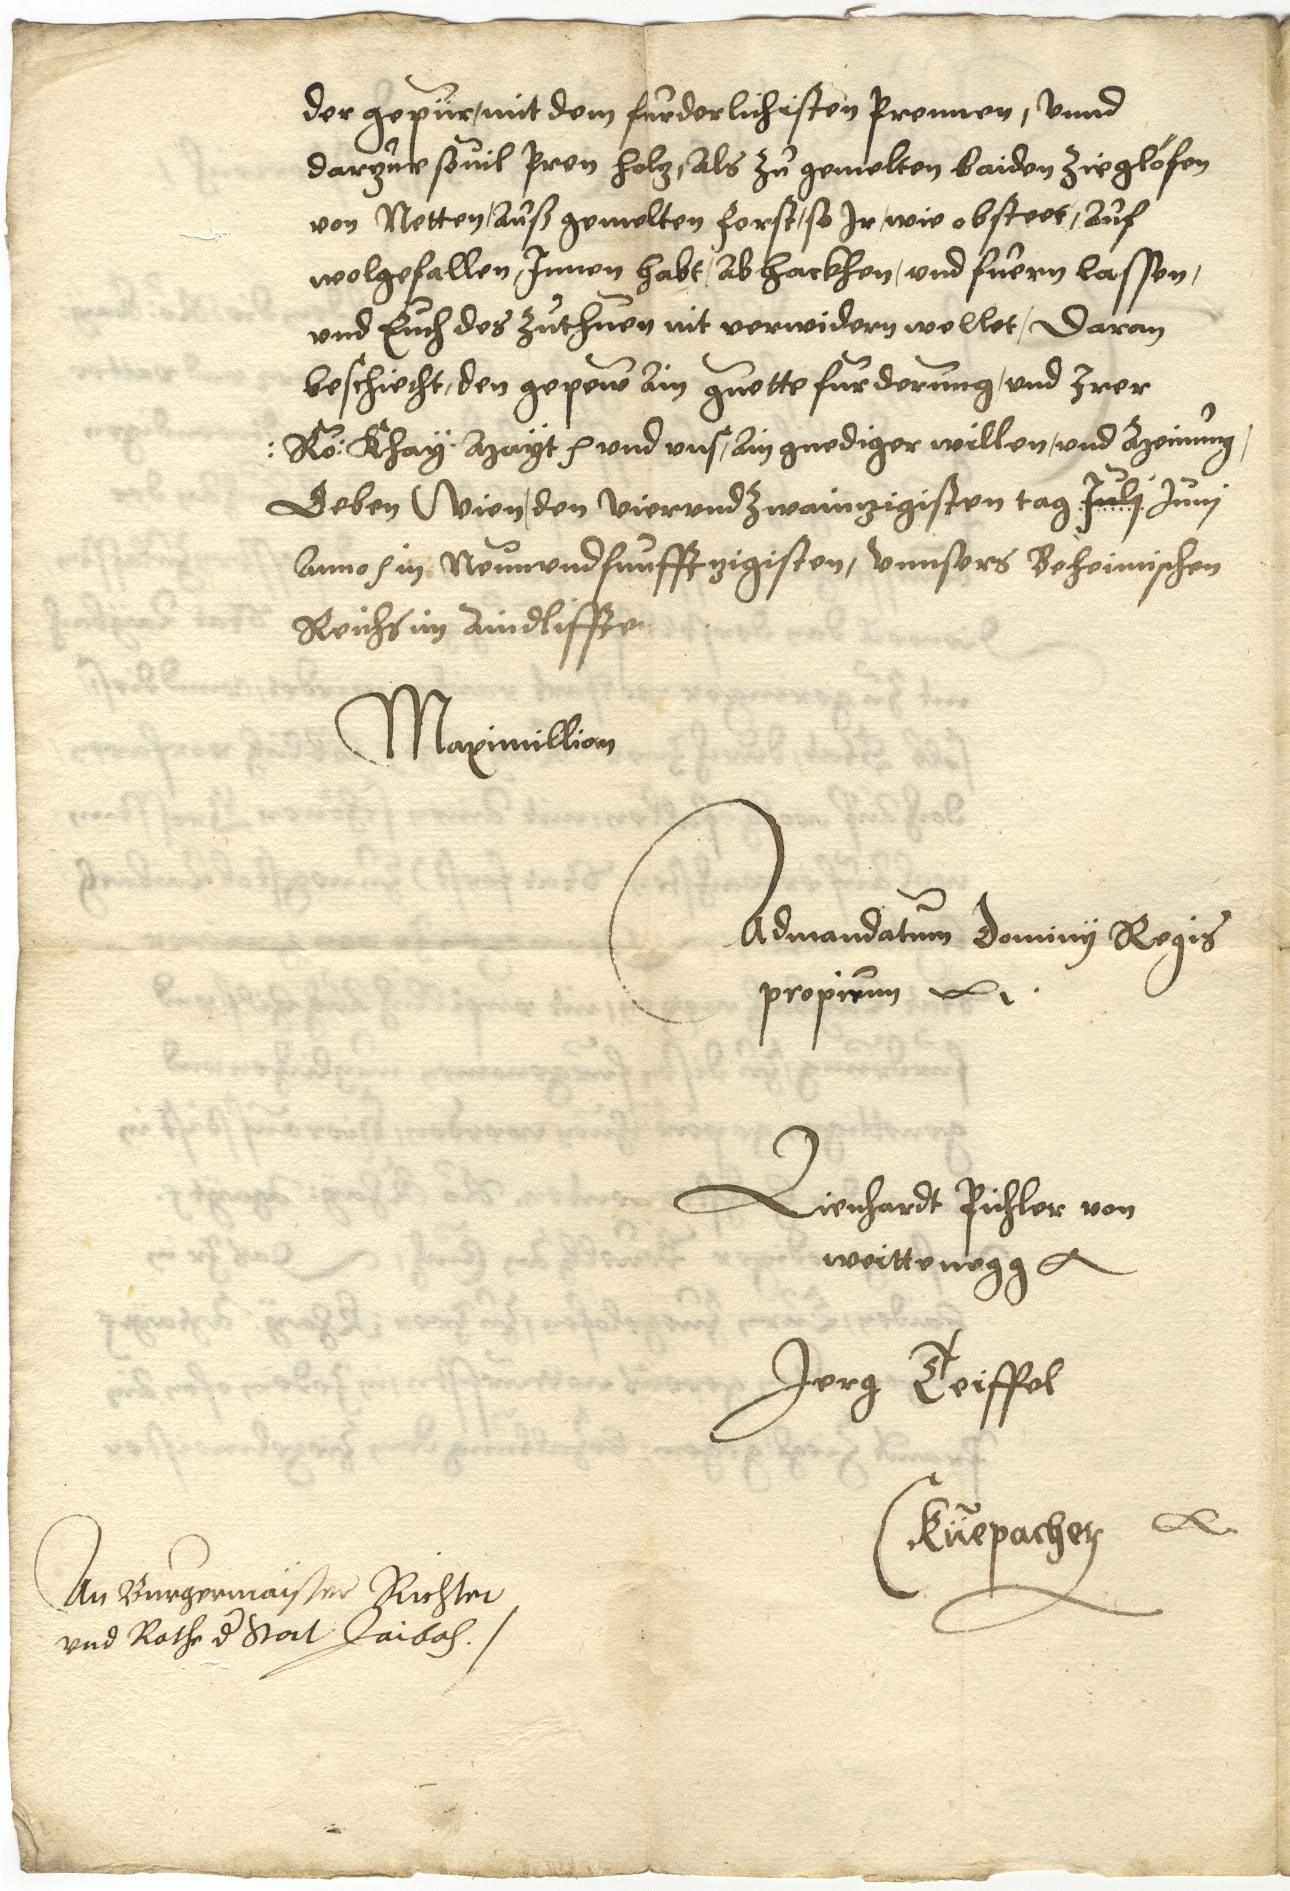 der gepür, mit dem furderlichisten Prennen, Vnnd
darzue souil Pren holz, als zu gemelten baiden Zieglöfen
von Netten, auß gemelten Forst, so Jr, wie obsteet, auf
wolgefallen, Innen habt, abhackhen, vnd fuern lassen,
vnd Euch des zuthuen nit verwidern wellet, Daran
beschiecht, den gepew ain guette furderung, vnd Irer
: Rö: Khay: Mayt: vnd vns, ain gnediger willen, vnd Mainung,
Geben Wien, den Vierundzwainzigisten tag Julij Junij
Anno im Neunundfunfftzigisten, Vnnsers Beheimischen
Reichs im Aindlifften
Maximillian
Admandatum Dominj Regis
proprium
Lienhardt Pichler von
weittenegg
Jerg Teiffel
Küepacher
An Burgermaister Richter
vnd Rathe d Stat Laibach./